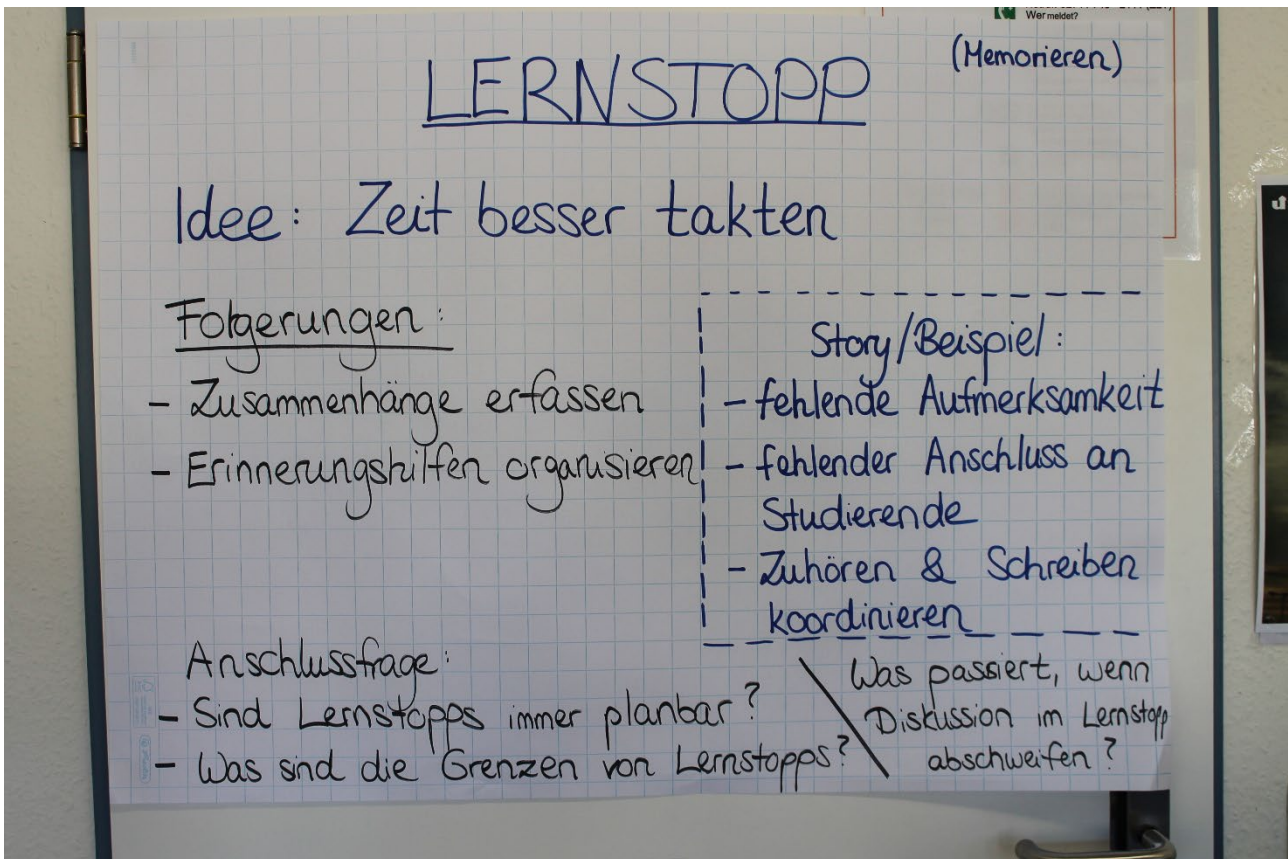 Wer meldet?
(Memorieren)
LERNSTOPP
Idee: Zeit besser takten
Folgerungen:
- Zusammenhänge erfassen
- Erinnerungshilfen organisieren
Story/Beispiel:
- fehlende Aufmerksamkeit
- fehlender Anschluss an
Studierende
- Zuhören & Schreiben
koordinieren
Anschlussfrage:
- Sind Lernstopps immer planbar?
- Was sind die Grenzen von Lernstopps?
Was passiert, wenn
Diskussion im Lernstopp
abschweifen?